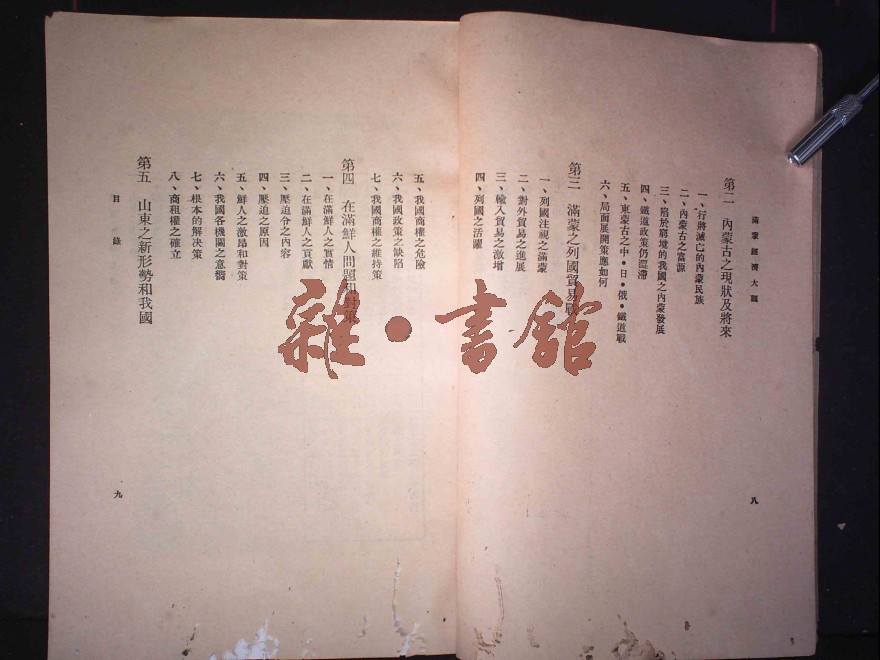 滿蒙經濟大觀
第二　內蒙古之現狀及將來
一、行將滅亡的內蒙民族
二、內蒙古之富源
三、陷於窮境的我國之內蒙發展
四、鐵道政策仍澀滯
五、東蒙古之中•日•俄•鐵道戰
六、局面展開策應如何
第三　滿蒙之列國貿易戰
一、列國注視之滿蒙
二、對外貿易之進展
三、輸入貿易之激增
四、列國之活躍
八
五、我國商權之危險
六、我國政策之缺陷
七、我國商權之維持策
第四　在滿鮮人問題和對策
一、在滿鮮人之實情
二、在滿鮮人之貢獻
三、壓迫令之內容
四、壓迫之原因
五、鮮人之激昂和對策
六、我國各機關之意嚮
七、根本的解決策
八、商租權之確立
第五　山東之新形勢和我國
目錄
九
雜•書館